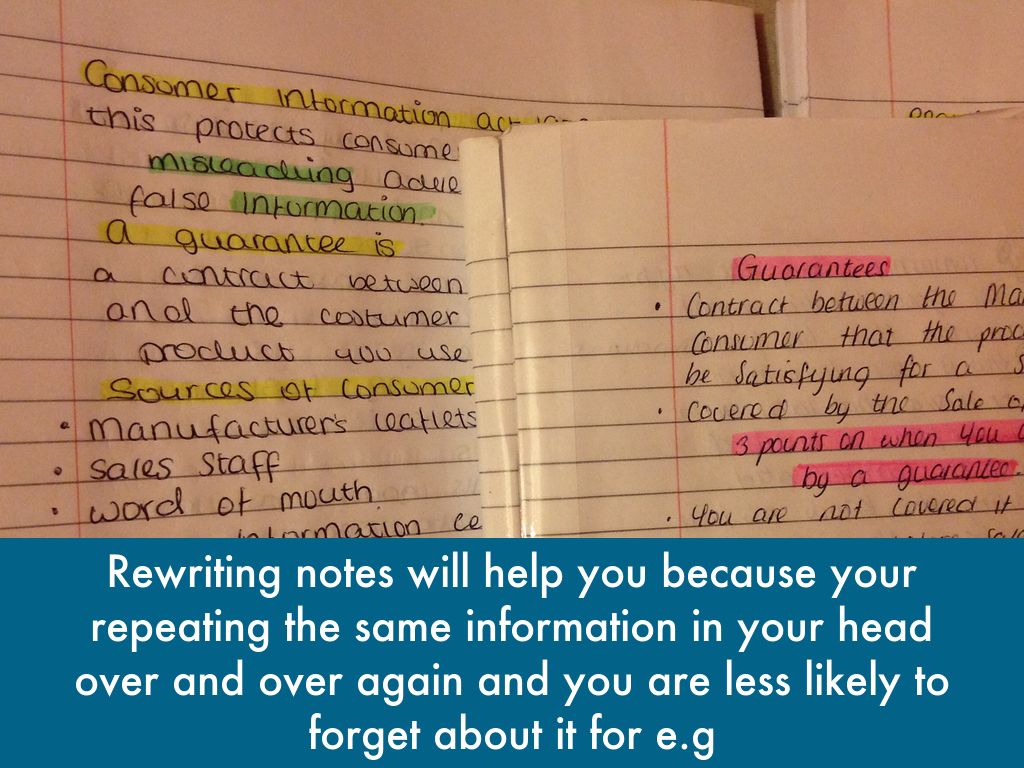 Consumer information act
this protects consume
misleading adve
false information.
a guarantee is
a contract between
and the costumer
product you use
Sources of consumer
• manufacturer's leaflets
• sales staff
• word of mouth
information ce
Guarantees
• Contract between the Ma
consumer that the prod
be satisfying for a S
• covered by the Sale o
3 points on when you a
by a guarantee.
• you are not covered if
Rewriting notes will help you because your
repeating the same information in your head
over and over again and you are less likely to
forget about it for e.g